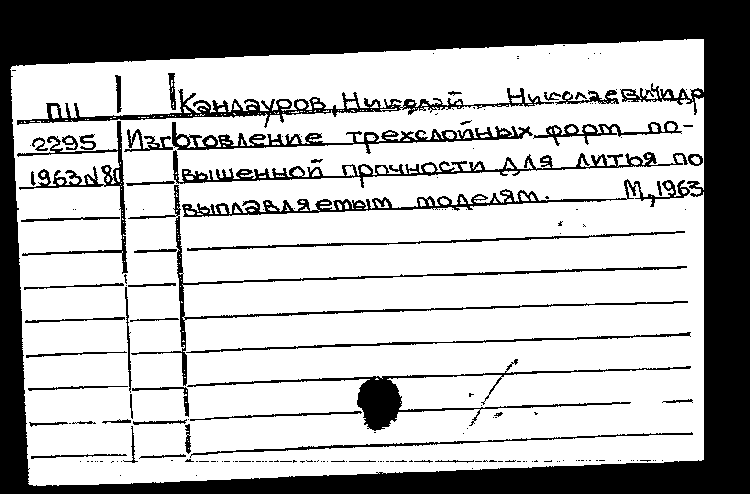 ПII Кандауров, Николай Николаевич и др
2295 Изготовление трехслойных форм по-
1963 N80 вышенной прочности для литья по
выплавляемым моделям. М, 1963